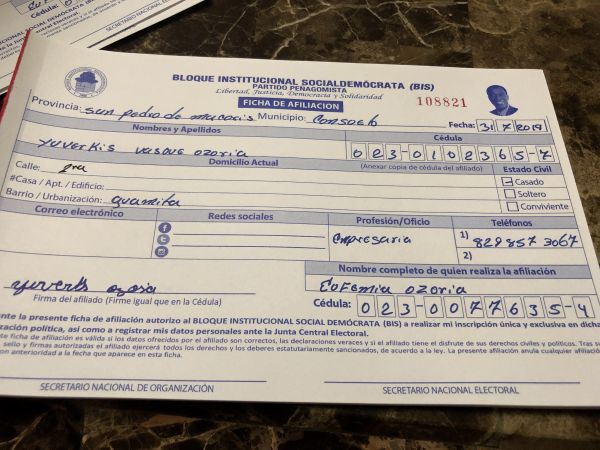 Cédula: 0
SECRETARIO NACIONAL
BLOQUE INSTITUCIONAL SOCIALDEMÓCRATA (BIS)
PARTIDO PEÑAGOMISTA
Libertad, Justicia, Democracia y Solidaridad
FICHA DE AFILIACION
108821
Provincia: sun pedro de macoris Municipio: Consoelo Fecha: 31/7/2019
Nombres y Apellidos Cédula
yuverkis vasque ozoria 023-0102365-7
Domicilio Actual (Anexar copia de cédula del afiliado) Estado Civil
Calle: gra
#Casa / Apt. / Edificio: Casado
Barrio / Urbanización: guamita Soltero
Conviviente
Correo electrónico Redes sociales Profesión/Oficio Teléfonos
Empresaria 1) 829 857 3067
2)
Nombre completo de quien realiza la afiliación
yuverks ozoria Eufemia ozoria
Firma del afiliado (Firme igual que en la Cédula) Cédula: 023-0077635-4
nte la presente ficha de afiliación autorizo al BLOQUE INSTITUCIONAL SOCIAL DEMÓCRATA (BIS) a realizar mi inscripción única y exclusiva en dicha
zación política, así como a registrar mis datos personales ante la Junta Central Electoral.
te ficha de afiliación es válida si los datos ofrecidos por el afiliado son correctos, las declaraciones veraces y si el afiliado tiene el disfrute de sus derechos civiles y políticos. Tras su
sello y firmas autorizadas el afiliado ejercerá todos los derechos y los deberes estatutariamente sancionados, de acuerdo a la ley. La presente afiliación anula cualquier afiliación
on anterioridad a la fecha que aparece en esta ficha.
SECRETARIO NACIONAL DE ORGANIZACIÓN SECRETARIO NACIONAL ELECTORAL